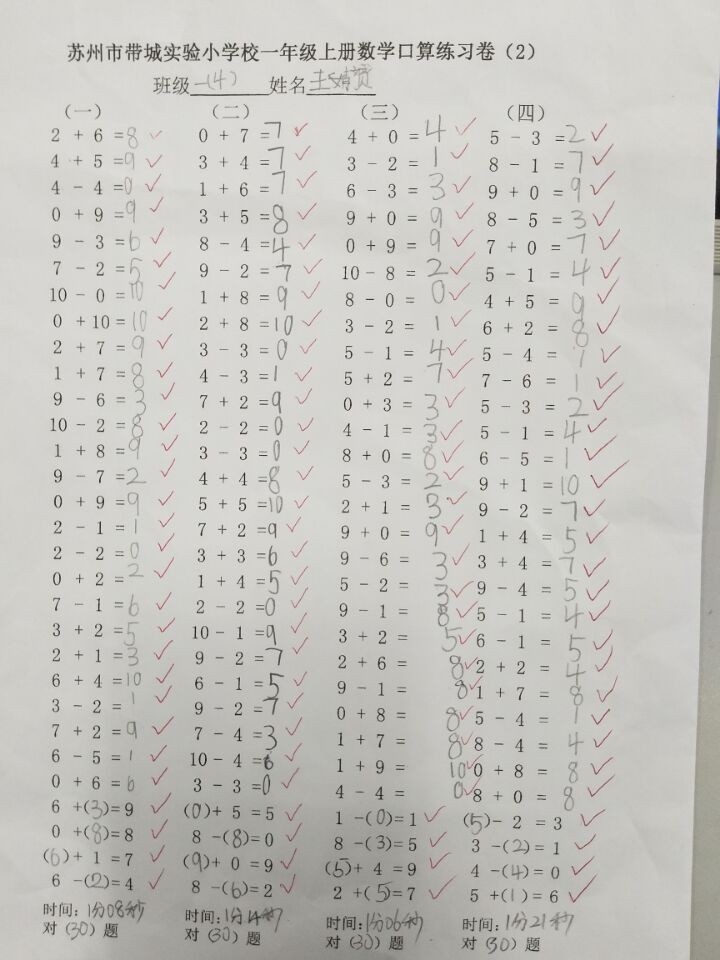 苏州市带城实验小学校一年级上册数学口算练习卷（2）
班级一(4) 姓名
（一）
2 + 6 =8
4 + 5 =9
4 - 4 =0
0 + 9 =9
9 - 3 =6
7 - 2 =5
10 - 0 =10
0 + 10 =10
2 + 7 =9
1 + 7 =8
9 - 6 =3
10 - 2 =8
1 + 8 =9
9 - 7 =2
0 + 9 =9
2 - 1 =1
2 - 2 =0
0 + 2 =2
7 - 1 =6
3 + 2 =5
2 + 1 =3
6 + 4 =10
3 - 2 =1
7 + 2 =9
6 - 5 =1
0 + 6 =6
6 +(3)=9
0 +(8)=8
(6)+ 1 =7
6 -(2)=4
时间：1分08秒
对（30）题
（二）
0 + 7 =7
3 + 4 =7
1 + 6 =7
3 + 5 =8
8 - 4 =4
9 - 2 =7
1 + 8 =9
2 + 8 =10
3 - 3 =0
4 - 3 =1
7 + 2 =9
2 - 2 =0
3 - 3 =0
4 + 4 =8
5 + 5 =10
7 + 2 =9
3 + 3 =6
1 + 4 =5
2 - 2 =0
10 - 1 =9
9 - 2 =7
6 - 1 =5
9 - 2 =7
7 - 4 =3
10 - 4 =6
3 - 3 =0
(0)+ 5 =5
8 -(8)=0
(9)+ 0 =9
8 -(6)=2
时间：1分14秒
对（30）题
（三）
4 + 0 =4
3 - 2 =1
6 - 3 =3
9 + 0 =9
0 + 9 =9
10 - 8 =2
8 - 0 =0
3 - 2 =1
5 - 1 =4
5 + 2 =7
0 + 3 =3
4 - 1 =3
8 + 0 =8
5 - 3 =2
2 + 1 =3
9 + 0 =9
9 - 6 =3
5 - 2 =3
9 - 1 =8
3 + 2 =5
2 + 6 =8
9 - 1 =8
0 + 8 =8
1 + 7 =8
1 + 9 =10
4 - 4 =0
1 -(0)=1
8 -(3)=5
(5)+ 4 =9
2 +(5)=7
时间：1分06秒
对（30）题
（四）
5 - 3 =2
8 - 1 =7
9 + 0 =9
8 - 5 =3
7 + 0 =7
5 - 1 =4
4 + 5 =9
6 + 2 =8
5 - 4 =1
7 - 6 =1
5 - 3 =2
5 - 1 =4
6 - 5 =1
9 + 1 =10
9 - 2 =7
1 + 4 =5
3 + 4 =7
9 - 4 =5
5 - 1 =4
6 - 1 =5
2 + 2 =4
1 + 7 =8
5 - 4 =1
8 - 4 =4
0 + 8 =8
8 + 0 =8
(5)- 2 =3
3 -(2)=1
4 -(4)=0
5 +(1)=6
时间：1分21秒
对（30）题